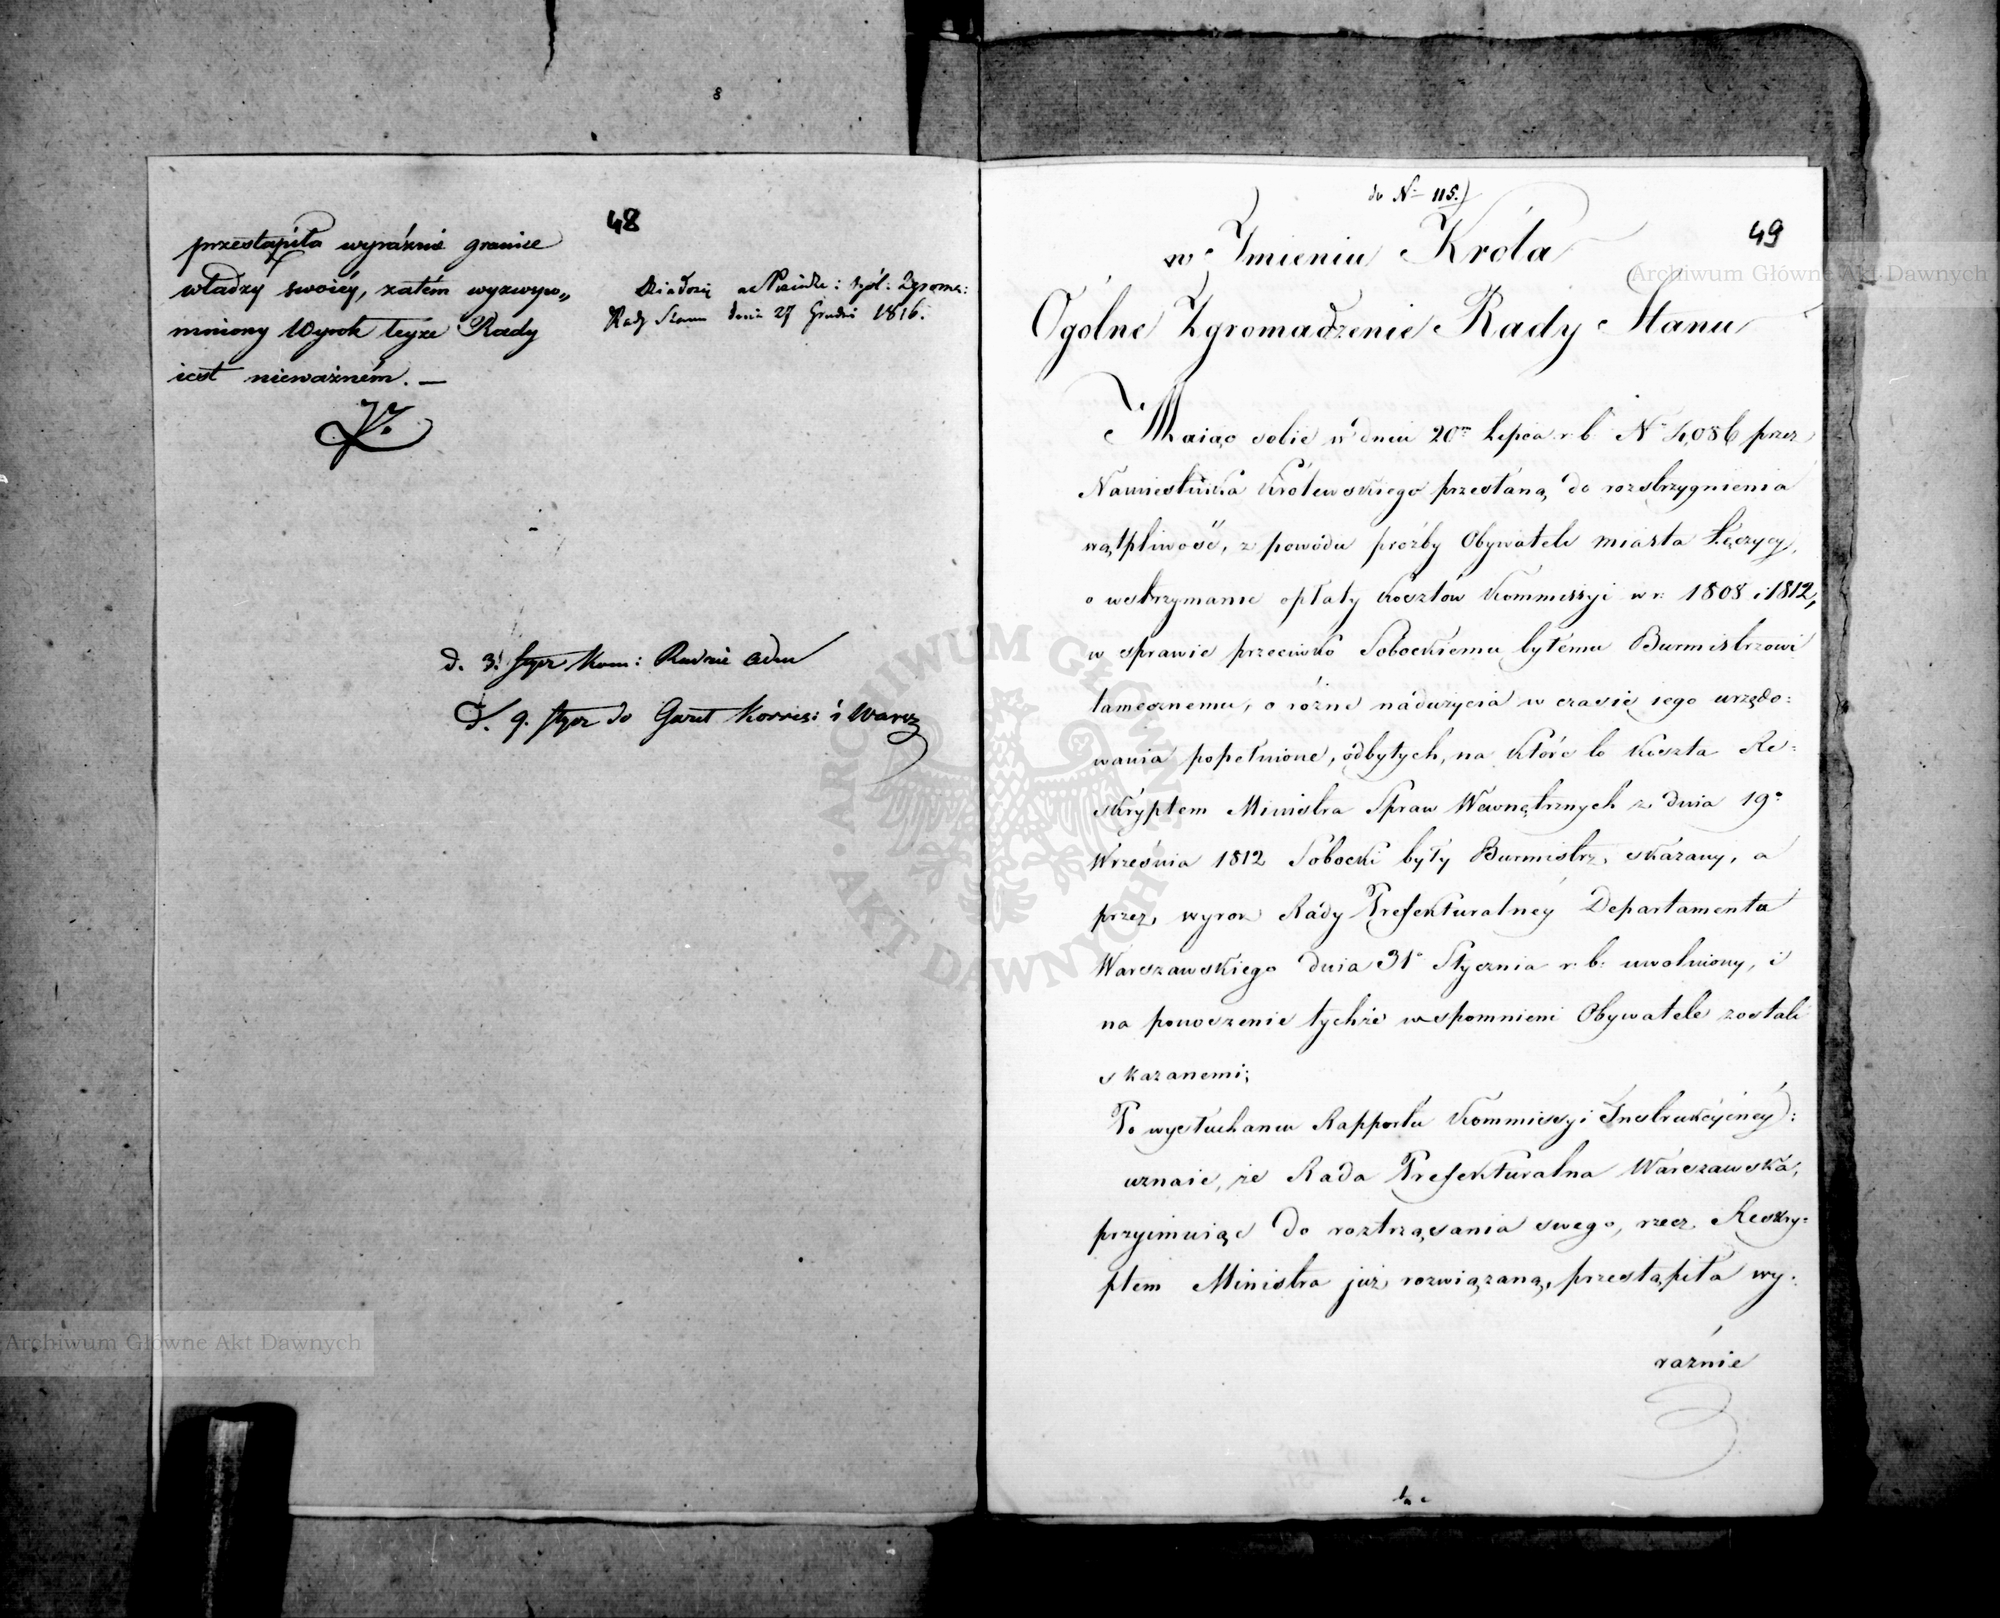 48
przestąpiła wyraźnie granice
władzy swoiéy, zatém wyzwspo„
mniony Wyrok teyże Rady
iest nieważném. —
Działo się na Posiedze: Ogól: Zgroma:
Rady Stanu dnia 27 Grudnia 1816.
d. 3. Stycz Kom:
d. 9. Stycz do Gazet Korresp: i Warsz
do N– 115.)
49
w Imieniu Króla
Ogólne Zgromadzenie Rady Stanu
Maiąc sobie w dniu 20m Lipca r. b. N– 4,086 przez
Namiestnika Królewskiego przesłaną do rozstrzygnienia
wątpliwość, z powodu prożby Obywateli miasta Łęczycy,
o wstrzymanie opłaty kosztów Kommissyi w r: 1808 i 1812,
w sprawie przeciwko Sobockiemu byłemu Burmistrzowi
tamecznemu, o różne nadużycia w czasie iego urzędo:
wania popełnione, odbytych, na które to koszta Re:
skryptem Ministra Spraw Wewnętrznych z dnia 19o
Września 1812 Sobocki były Burmistrz, skazany, a
przez wyrok Rady Prefekturalnéy Departamentu
Warszawskiego dnia 31o Stycznia r. b: uwolniony, i
na ponoszenie tychże wspomnieni Obywatele zostali
skazanemi;
Po wysłuchaniu Rapportu Kommissyi Instrukcyinéy:
uznaie, że Rada Prefekturalna Warszawska,
przyimuiąc do roztrząsania swego, rzecz Reskry:
ptem Ministra już rozwiązaną, przestąpiła wy:
raźnie
Archiwum Główne Akt Dawnych
Archiwum Główne Akt Dawnych
ARCHIWUM GŁÓWNE • AKT DAWNYCH •